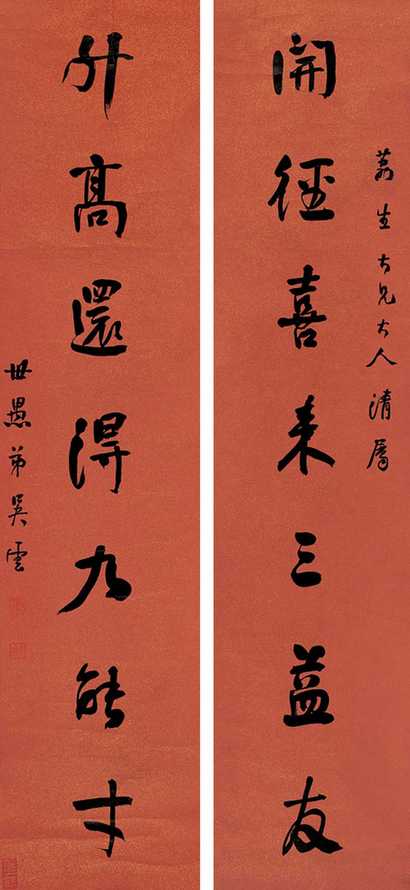 荔生大兄大人清属
開徑喜来三益友
升高還得九能才
世愚弟吴雲